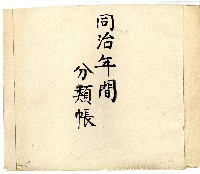 同治年間
分類帳